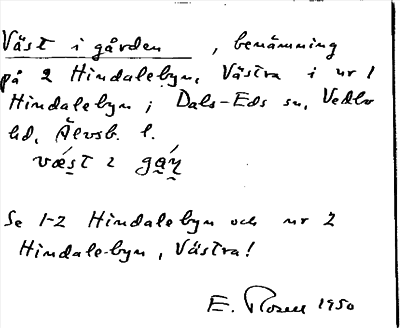 Väst i gården, benämning
på 2 Hindalebyn, Västra i nr 1
Hindalebyn i Dals-Eds sn, Vedbo
hd, Älvsb. l.
vǽst i gá̱ṇ
Se 1-2 Hindalebyn och nr 2
Hindalebyn, Västra!
E. Rosell 1950